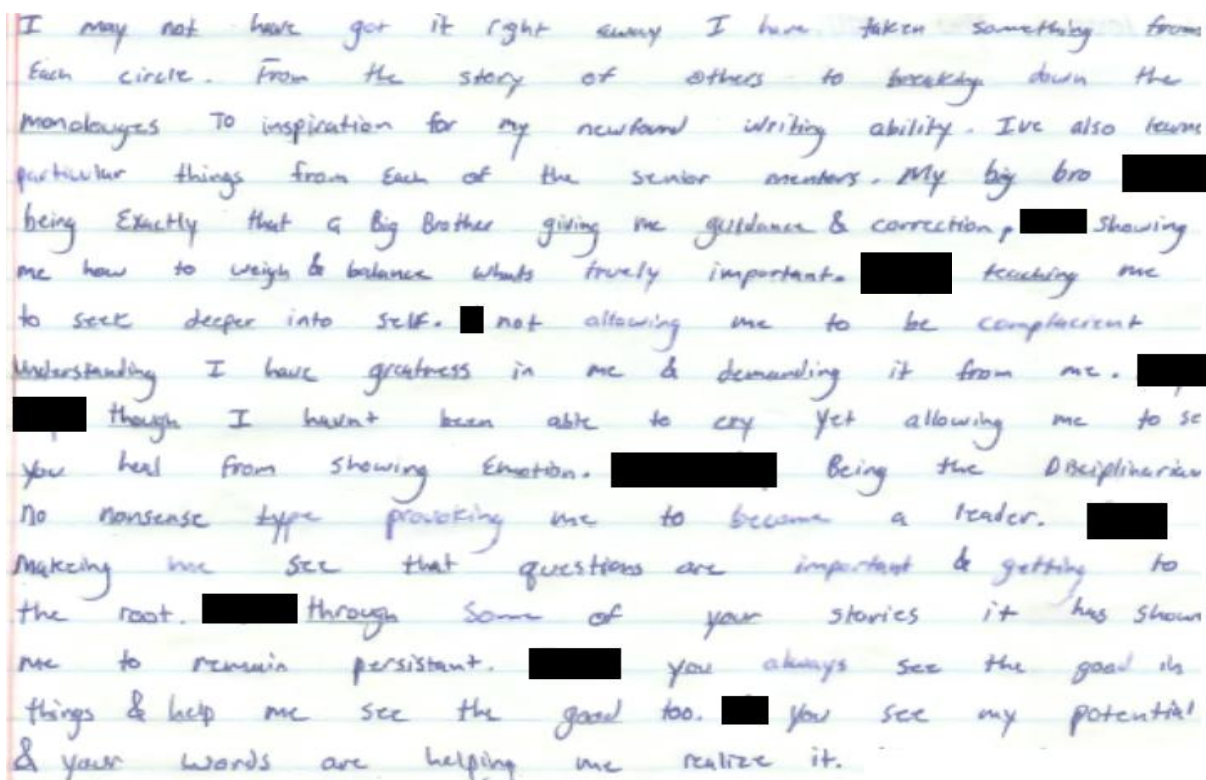 I may not have got it right away I have taken something from
Each circle. From the story of others to breaking down the
monolouges To inspiration for my newfound writing ability. Ive also learne
particular things from Each of the senior mentors. My big bro
being Exactly that a Big Brother giving me guidance & correction, showing
me how to weigh & balance whats truely important. teaching me
to seek deeper into self. not allowing me to be complacient
Understanding I have greatness in me & demanding it from me.
though I havnt been able to cry yet allowing me to se
you heal from showing Emotion. Being the Disciplinarian
no nonsense type provoking me to become a leader.
Makeing me see that questions are important & getting to
the root. through some of your stories it has shown
me to remain persistant. you always see the good in
things & help me see the good too. you see my potential
& your words are helping me realize it.